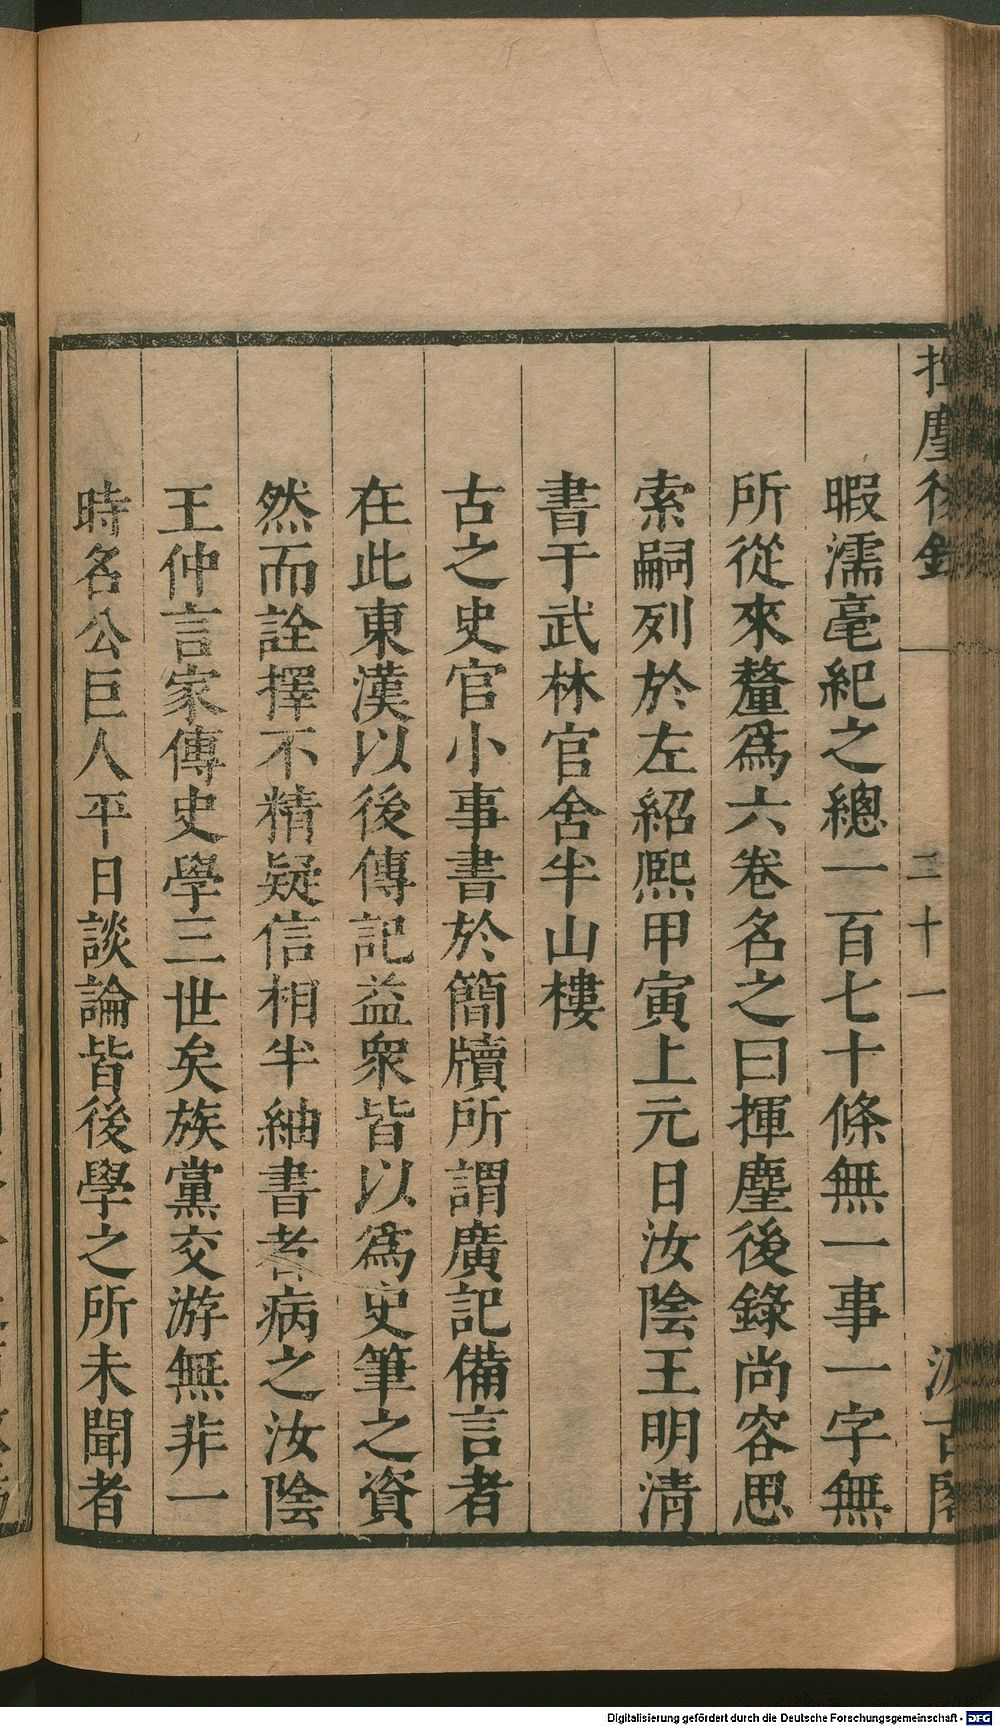 揮麈後錄
二十一
汲古閣
暇濡毫紀之總一百七十條無一事一字無
所從來釐爲六卷名之曰揮麈後錄尚容思
索嗣列於左紹熙甲寅上元日汝陰王明清
書于武林官舍半山樓
古之史官小事書於簡牘所謂廣記備言者
在此東漢以後傳記益衆皆以爲史筆之資
然而詮擇不精疑信相半紬書者病之汝陰
王仲言家傳史學三世矣族黨交游無非一
時名公巨人平日談論皆後學之所未聞者
Digitalisierung gefördert durch die Deutsche Forschungsgemeinschaft - DFG